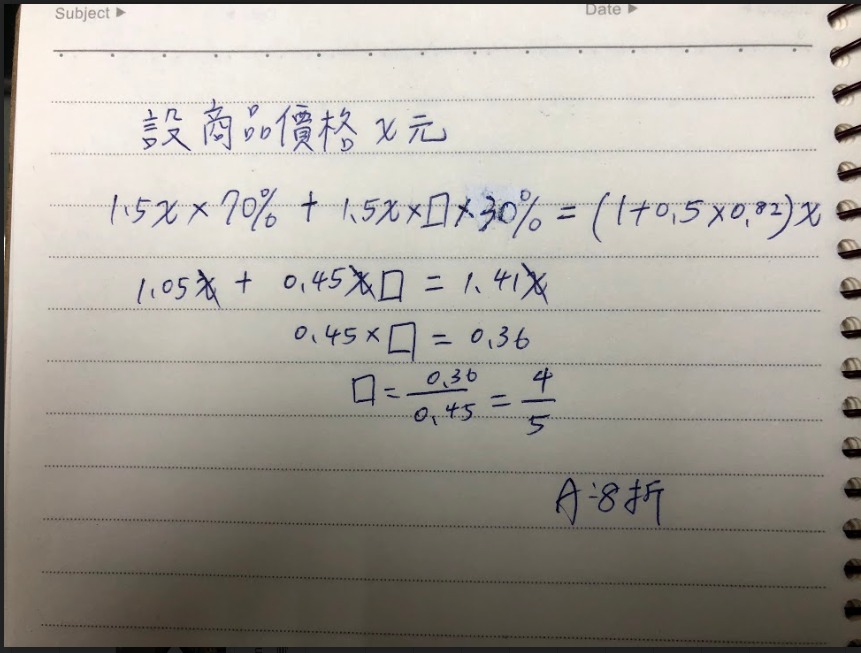 Subject ▶ Date ▶
設商品價格 x 元
1.5x × 70% + 1.5x × □ × 30% = (1+0.5×0.82)x
1.05x + 0.45x□ = 1.41x
0.45 × □ = 0.36
□ = 0.36/0.45 = 4/5
A:8折